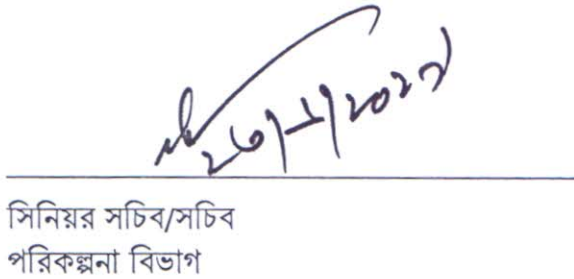 সিনিয়র সচিব/সচিব
পরিকল্পনা বিভাগ